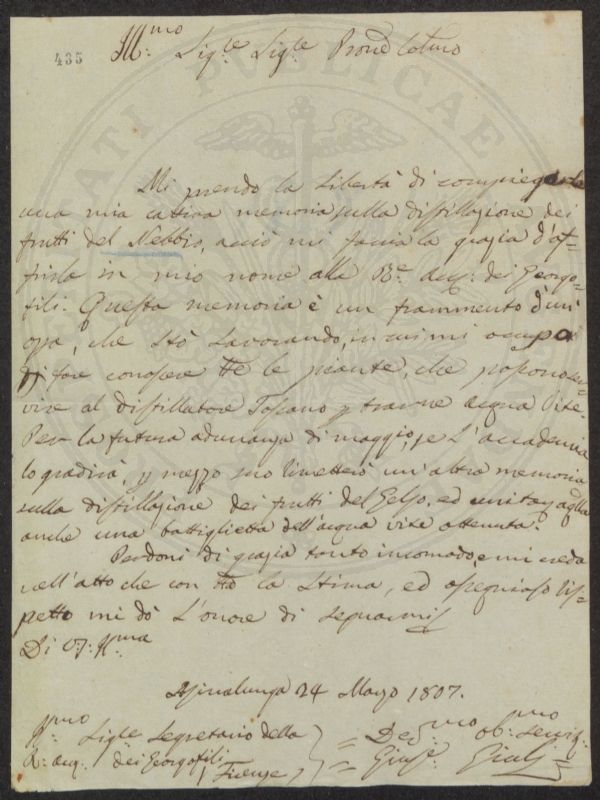 435
Ill:mo Sig:le Sig:le Prone Colmo
Mi prendo la libertà di compiegarle
una mia cativa memoria sulla distillazione dei
frutti del Nebbio, acciò mi faccia la grazia d'of=
frirla in mio nome alla Re: Acc: dei Georgo=
fili. Questa memoria è un frammento d'un
opa, che stò lavorando, in cui mi occupo
di fare conoscere tte le piante, che possono ser=
vire al distillatore Toscano p trarne acqua vite.
Per la futura adunanza di maggio, se l'accademia
lo gradirà, p mezzo suo rimetterò un'altra memoria
sulla distillazione dei frutti del Gelso, ed unitam alla
anche una bottiglietta dell'acqua vite ottenuta.
Perdoni di grazia tanto incomodo, e mi creda
nell'atto che con tta la stima, ed ossequioso ris=
petto mi dò l'onore di segnarmi
Di V: S: Ill:ma
Asinalunga 24 Marzo 1807.
Ill:mo Sig:le Segretario della
R: Acc: dei Georgofili
Firenze
= Dev:mo ob:mo Servit:
= Gius: Giulj =